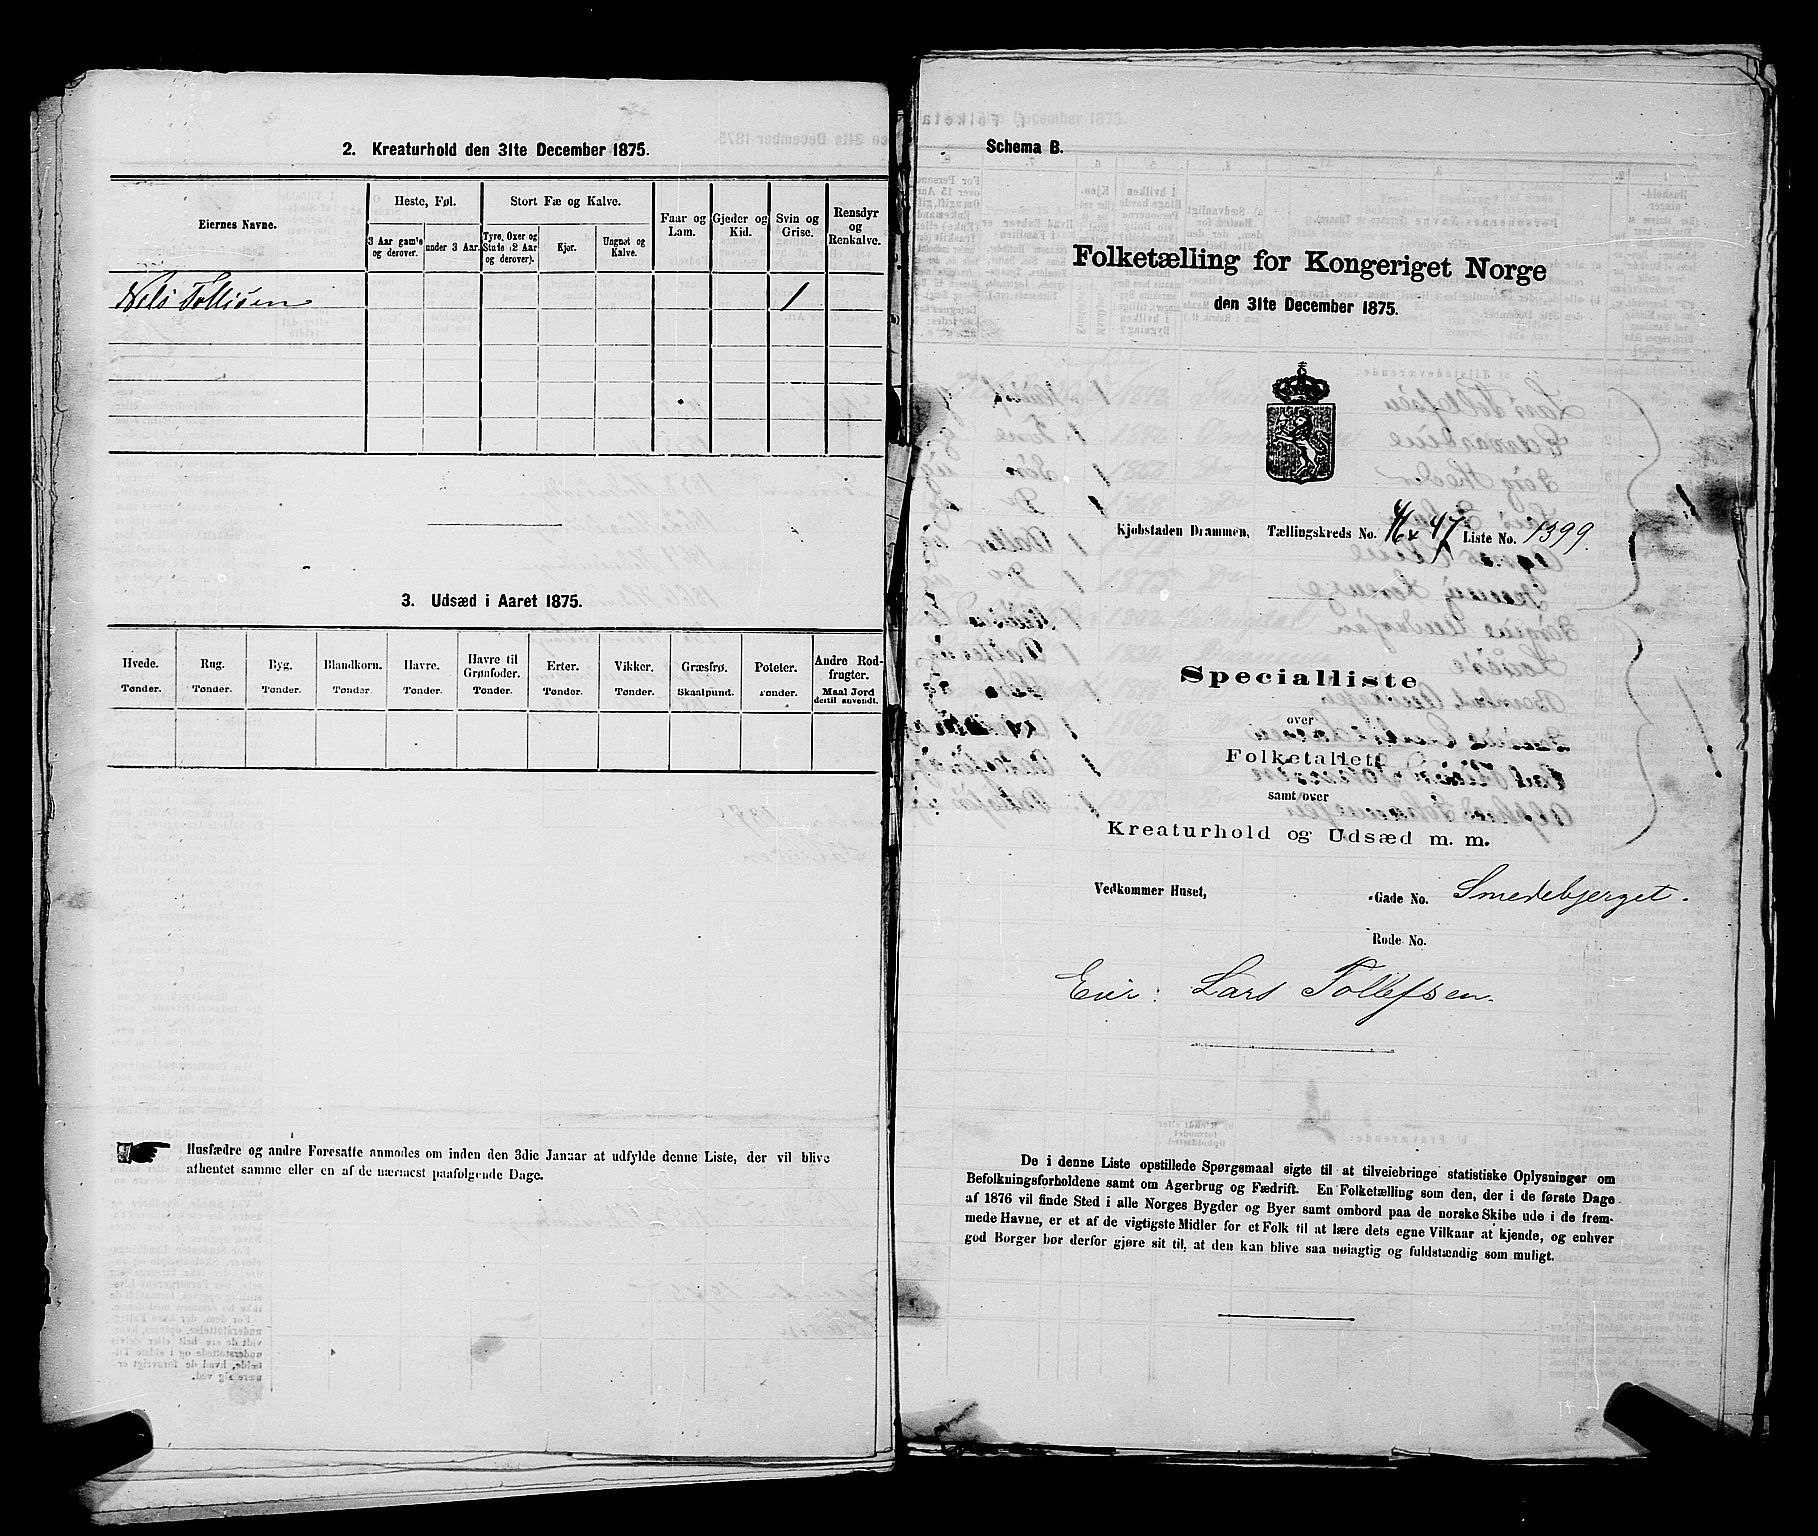 2. Kreaturhold den 31te December 1875.
Eiernes Navne.
Heste, Føl.
Stort Fæ og Kalve.
Faar og Lam.
Gjeder og Kid.
Svin og Grise.
Rensdyr og Renkalve.
3 Aar gamle og derover.
under 3 Aar.
Tyre, Oxer og Stude (2 Aar og derover).
Kjør.
Ungnøt og Kalve.
Nels Tollisen 1
3. Udsæd i Aaret 1875.
Hvede. Tønder.
Rug. Tønder.
Byg. Tønder.
Blandkorn. Tønder.
Havre. Tønder.
Havre til Grønfoder. Tønder.
Erter. Tønder.
Vikker. Tønder.
Græsfrø. Skaalpund.
Poteter. Tønder.
Andre Rodfrugter. Maal Jord dertil anvendt.
Husfædre og andre Foresatte anmodes om inden den 3die Januar at udfylde denne Liste, der vil blive
afhentet samme eller en af de nærmest paafølgende Dage.
Schema B.
Folketælling for Kongeriget Norge
den 31te December 1875.
Kjøbstaden Drammen, Tællingskreds No. 47 Liste No. 1399.
Specialliste
over
Folketallet
samt over
Kreaturhold og Udsæd m. m.
Vedkommer Huset, Gade No. Smedebjerget.
Rode No.
Eier: Lars Tollefsen.
De i denne Liste opstillede Spørgsmaal sigte til at tilveiebringe statistiske Oplysninger om
Befolkningsforholdene samt om Agerbrug og Fædrift. En Folketælling som den, der i de første Dage
af 1876 vil finde Sted i alle Norges Bygder og Byer samt ombord paa de norske Skibe ude i de frem-
mede Havne, er et af de vigtigste Midler for et Folk til at lære dets egne Vilkaar at kjende, og enhver
god Borger bør derfor gjøre sit til, at den kan blive saa nøiagtig og fuldstændig som muligt.